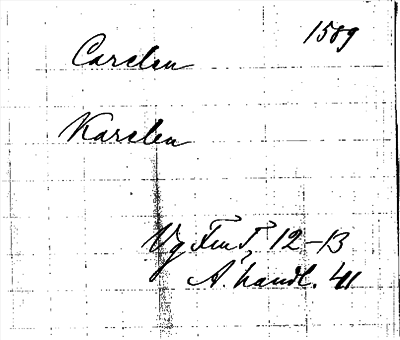 1589
Carelen
Karelen
Vg Fru T. 12-13
Ä. handl. 41